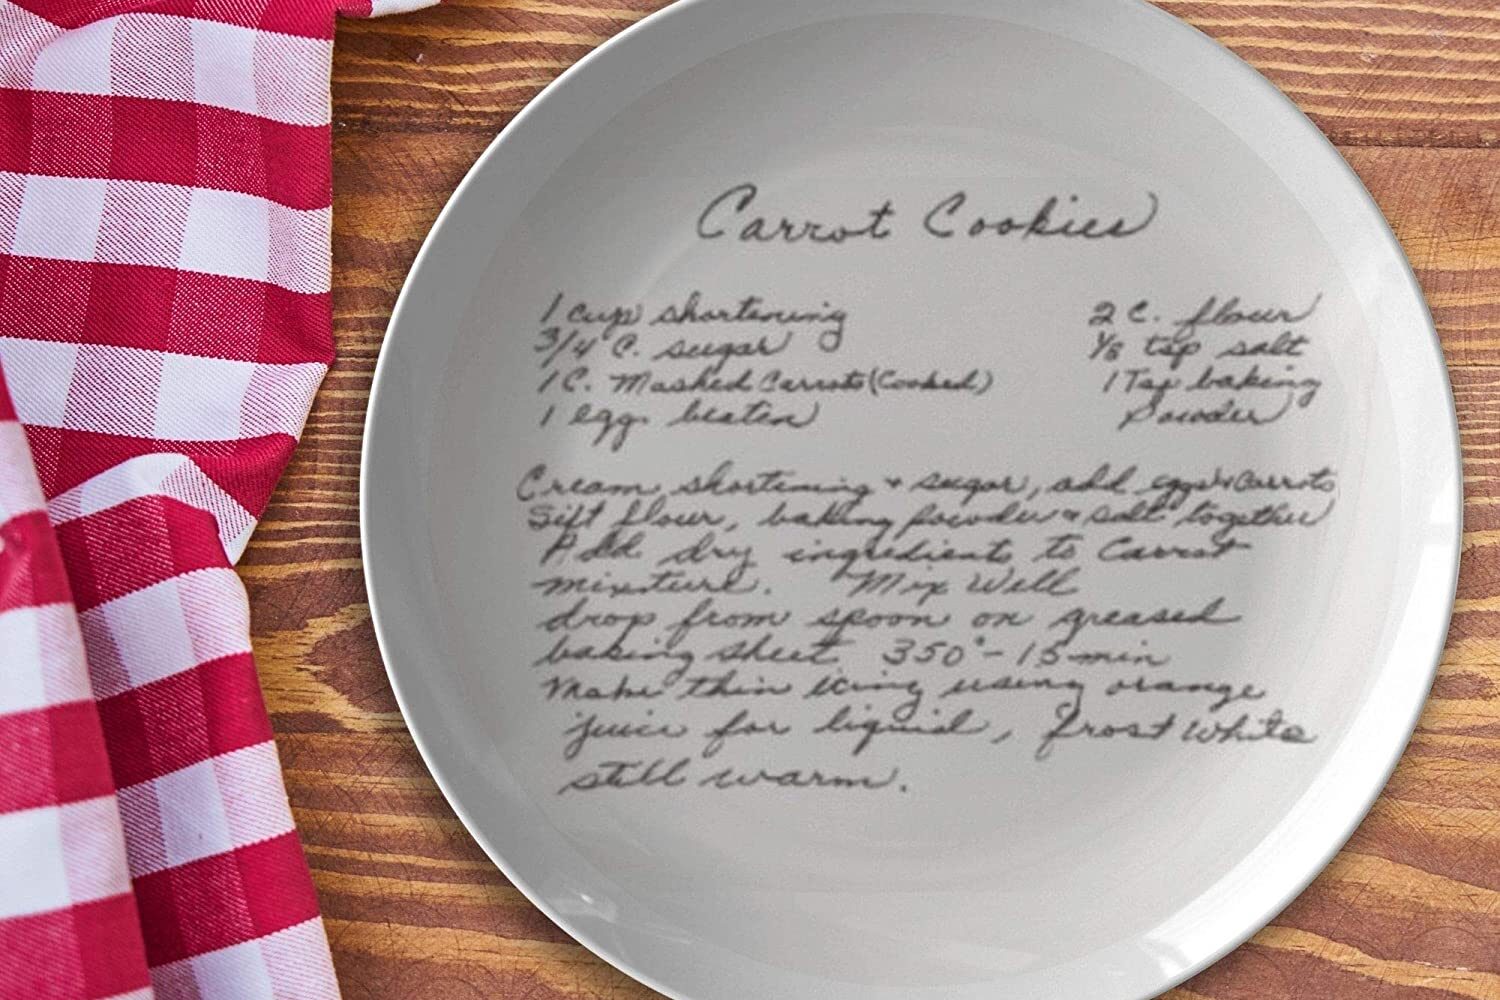 Carrot Cookies
1 cup shortening
3/4 C. sugar
1 C. Mashed Carrots (Cooked)
1 egg beaten
2 C. flour
1/8 tsp salt
1 Tsp baking
Powder
Cream shortening + sugar, add eggs + Carrots
Sift flour, baking powder + salt together
Add dry ingredients to Carrot
mixture. Mix Well
drop from spoon on greased
baking sheet 350° - 15 min
Make thin icing using orange
juice for liquid, frost while
still warm.